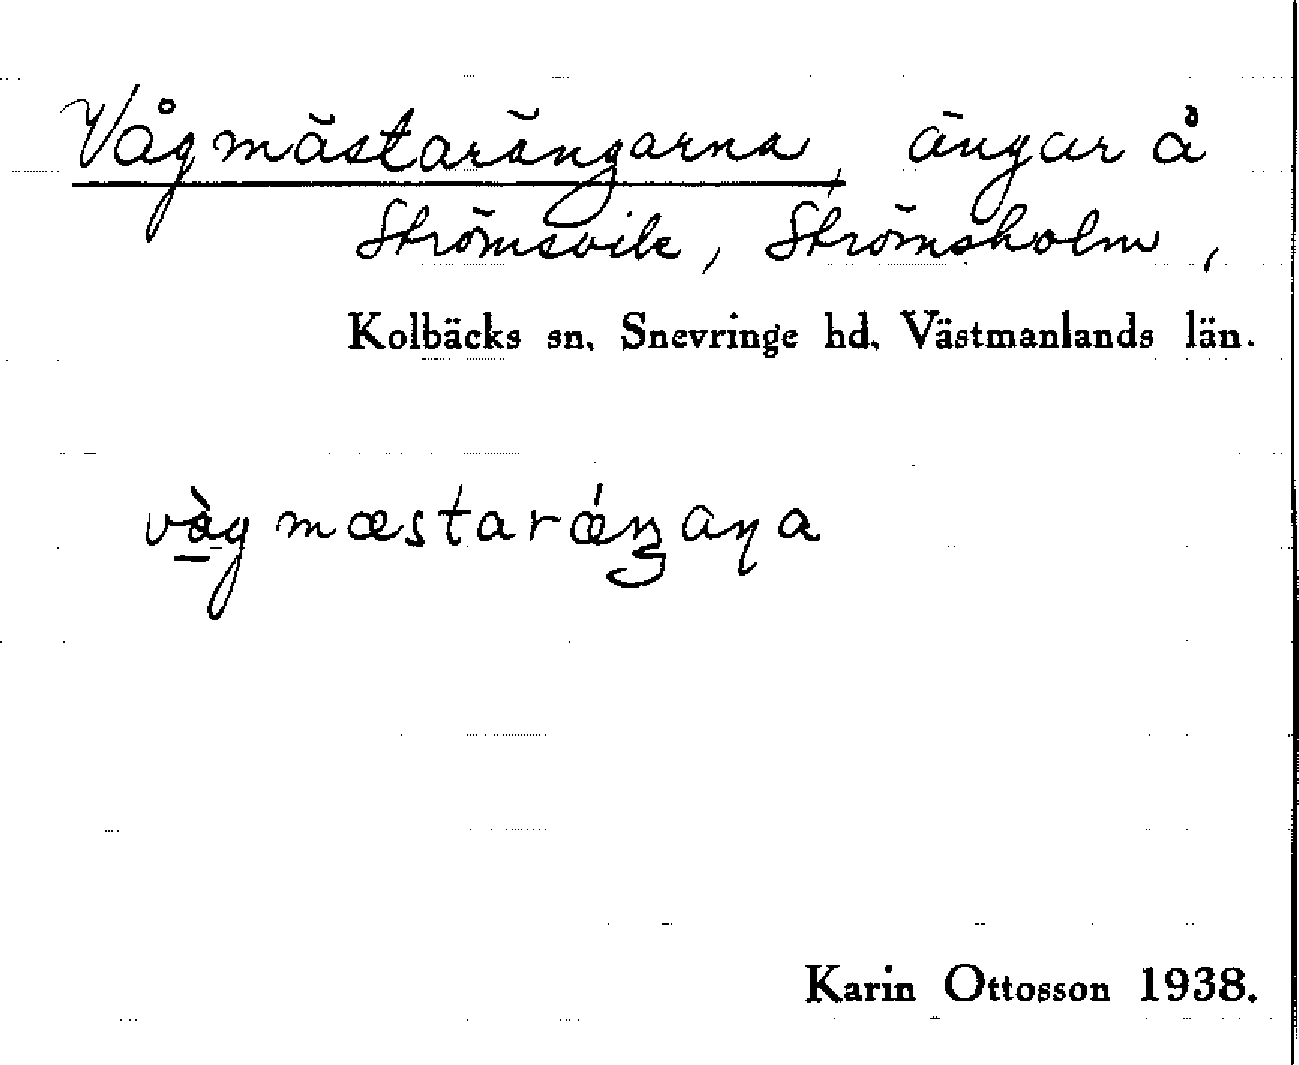 Vågmästarängarna, ängar å
Strömsvik, Strömsholm,
Kolbäcks sn, Snevringe hd, Västmanlands län.
và̱gmæstarǽŋaɳa
Karin Ottosson 1938.